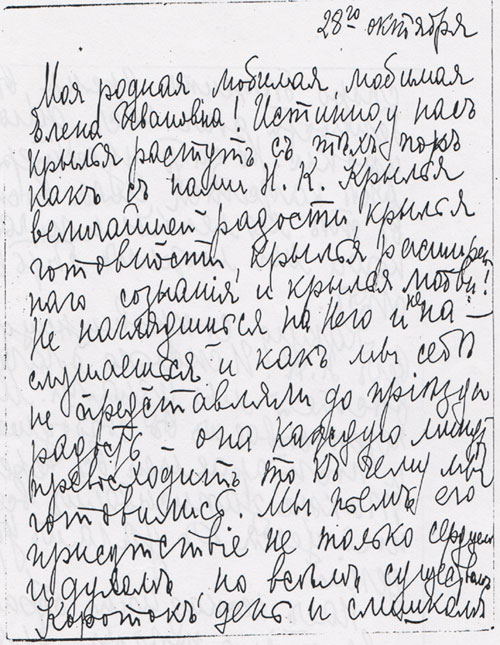 28го октября
Моя родная любимая, любимая
Елена Ивановна! Истинно, у насъ
крылья растутъ съ тѣхъ поръ
какъ съ нами Н. К. Крылья
величайшей радости, крылья
готовности, крылья расширен
наго сознанія и крылья любви!
Не наглядишься на Него и не на-
слушаешься и какъ мы себѣ
не представляли до пріѣзда
радость – она каждую минуту
превосходитъ то къ чему мы
готовились. Мы пьемъ его
присутствіе не только сердцемъ
и духомъ, но всѣмъ существомъ
Коротокъ день и слишкомъ